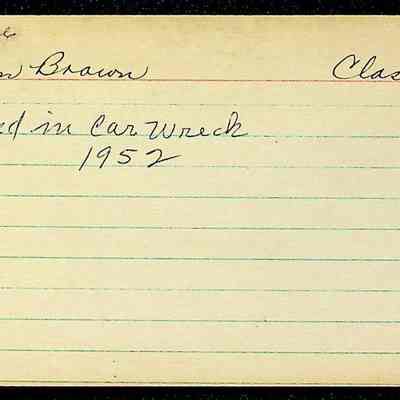 n Brown Clas
ed in Car Wreck
1952